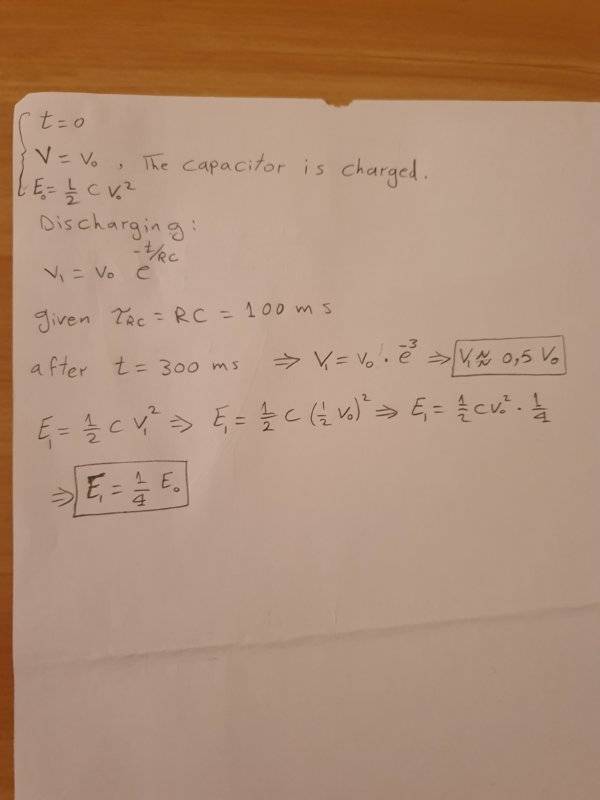 t = 0
V = V₀ , The capacitor is charged.
E₀ = 1/2 C V₀²
Discharging:
V₁ = V₀ e^(-t/RC)
given τ_RC = RC = 100 ms
after t = 300 ms ⇒ V₁ = V₀ · e⁻³ ⇒ V₁ ≈ 0,5 V₀
E₁ = 1/2 C V₁² ⇒ E₁ = 1/2 C (1/2 V₀)² ⇒ E₁ = 1/2 C V₀² · 1/4
⇒ E₁ = 1/4 E₀